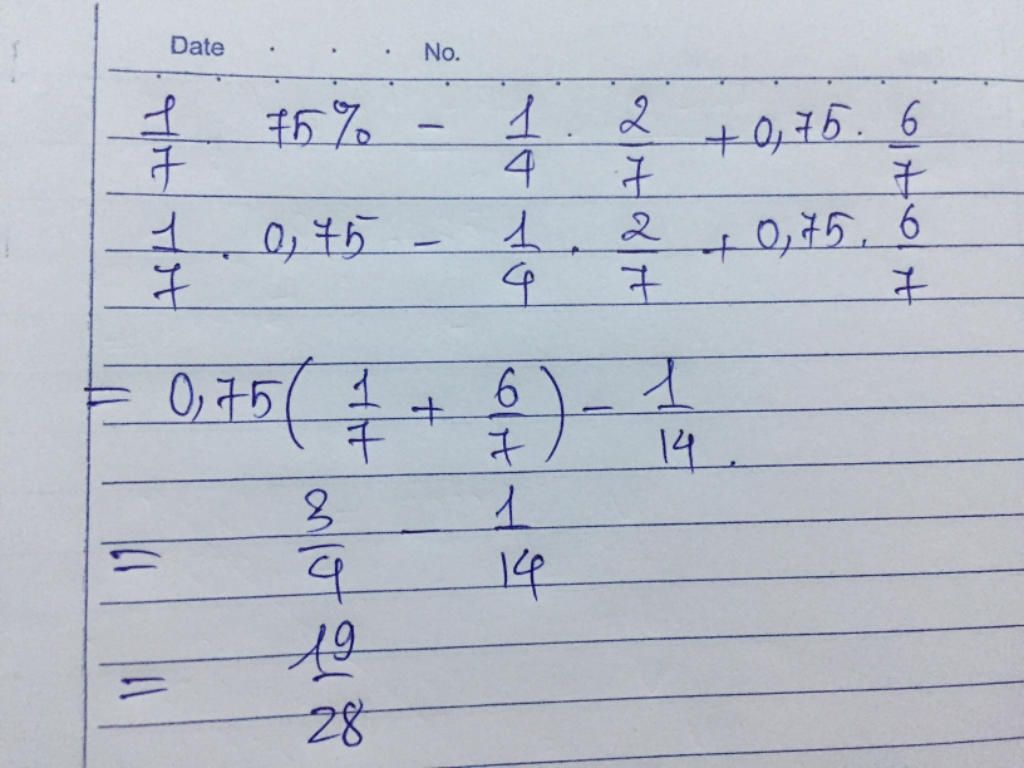 Date . . . No.
1/7 75% - 1/4 . 2/7 + 0,75 . 6/7
1/7 . 0,75 - 1/4 . 2/7 + 0,75 . 6/7
= 0,75 ( 1/7 + 6/7 ) - 1/14 .
= 3/4 - 1/14
= 19/28